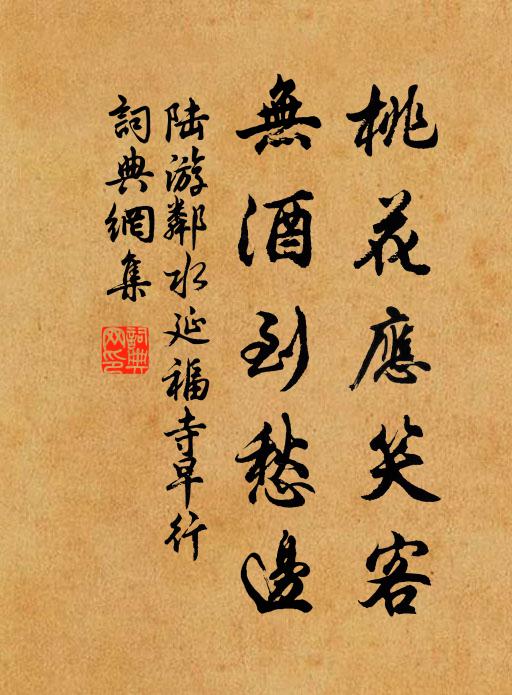 桃花應笑客
無酒到愁邊
陆游鄰水延福寺早行
詞典網集
詞典網印